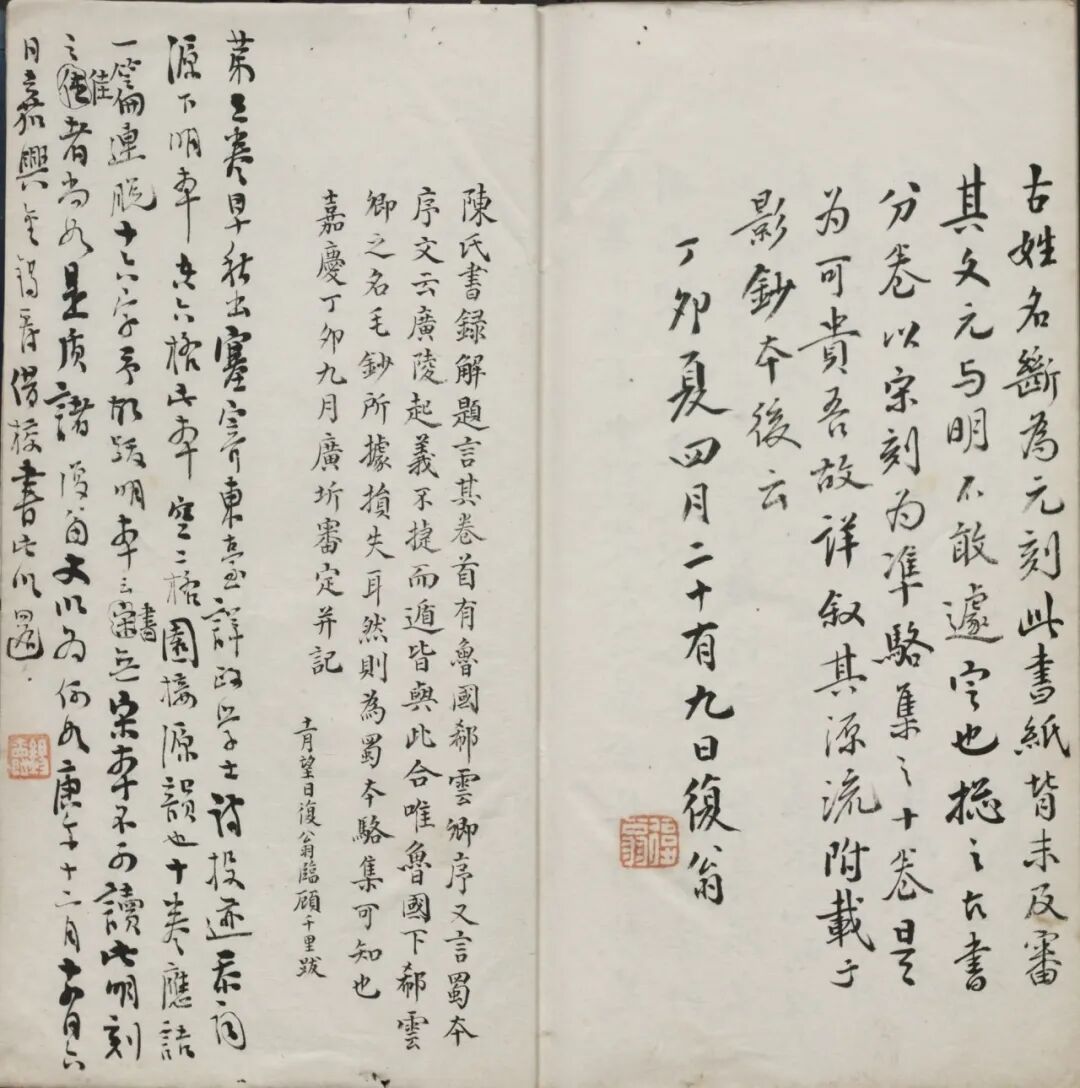 古姓名斷為元刻此書紙背未及審
其文元与明不敢遽定也揔之古書
分卷以宋刻为準駱集之十卷是
为可貴吾故詳叙其源流附載于
影鈔本後云
丁卯夏四月二十有九日復翁
復翁
陳氏書録解題言其卷首有魯國郗雲卿序又言蜀本
序文云廣陵起義不捷而遁皆與此合唯魯國下郗雲
卿之名毛鈔所據損失耳然則為蜀本駱集可知也
嘉慶丁卯九月廣圻審定并記
十一月望日復翁臨顧千里跋
卷早秋出塞寄東臺詳政学士詩投迹忝詞
源下明本共六格此本空二格園按源韻也十卷應詰
一篇連脱十六字予故跋明本云書無宋本不可讀此明刻
之佳者尚如是質諸復翁又以為何如庚午十二月
日嘉興金錫爵借校書此以還